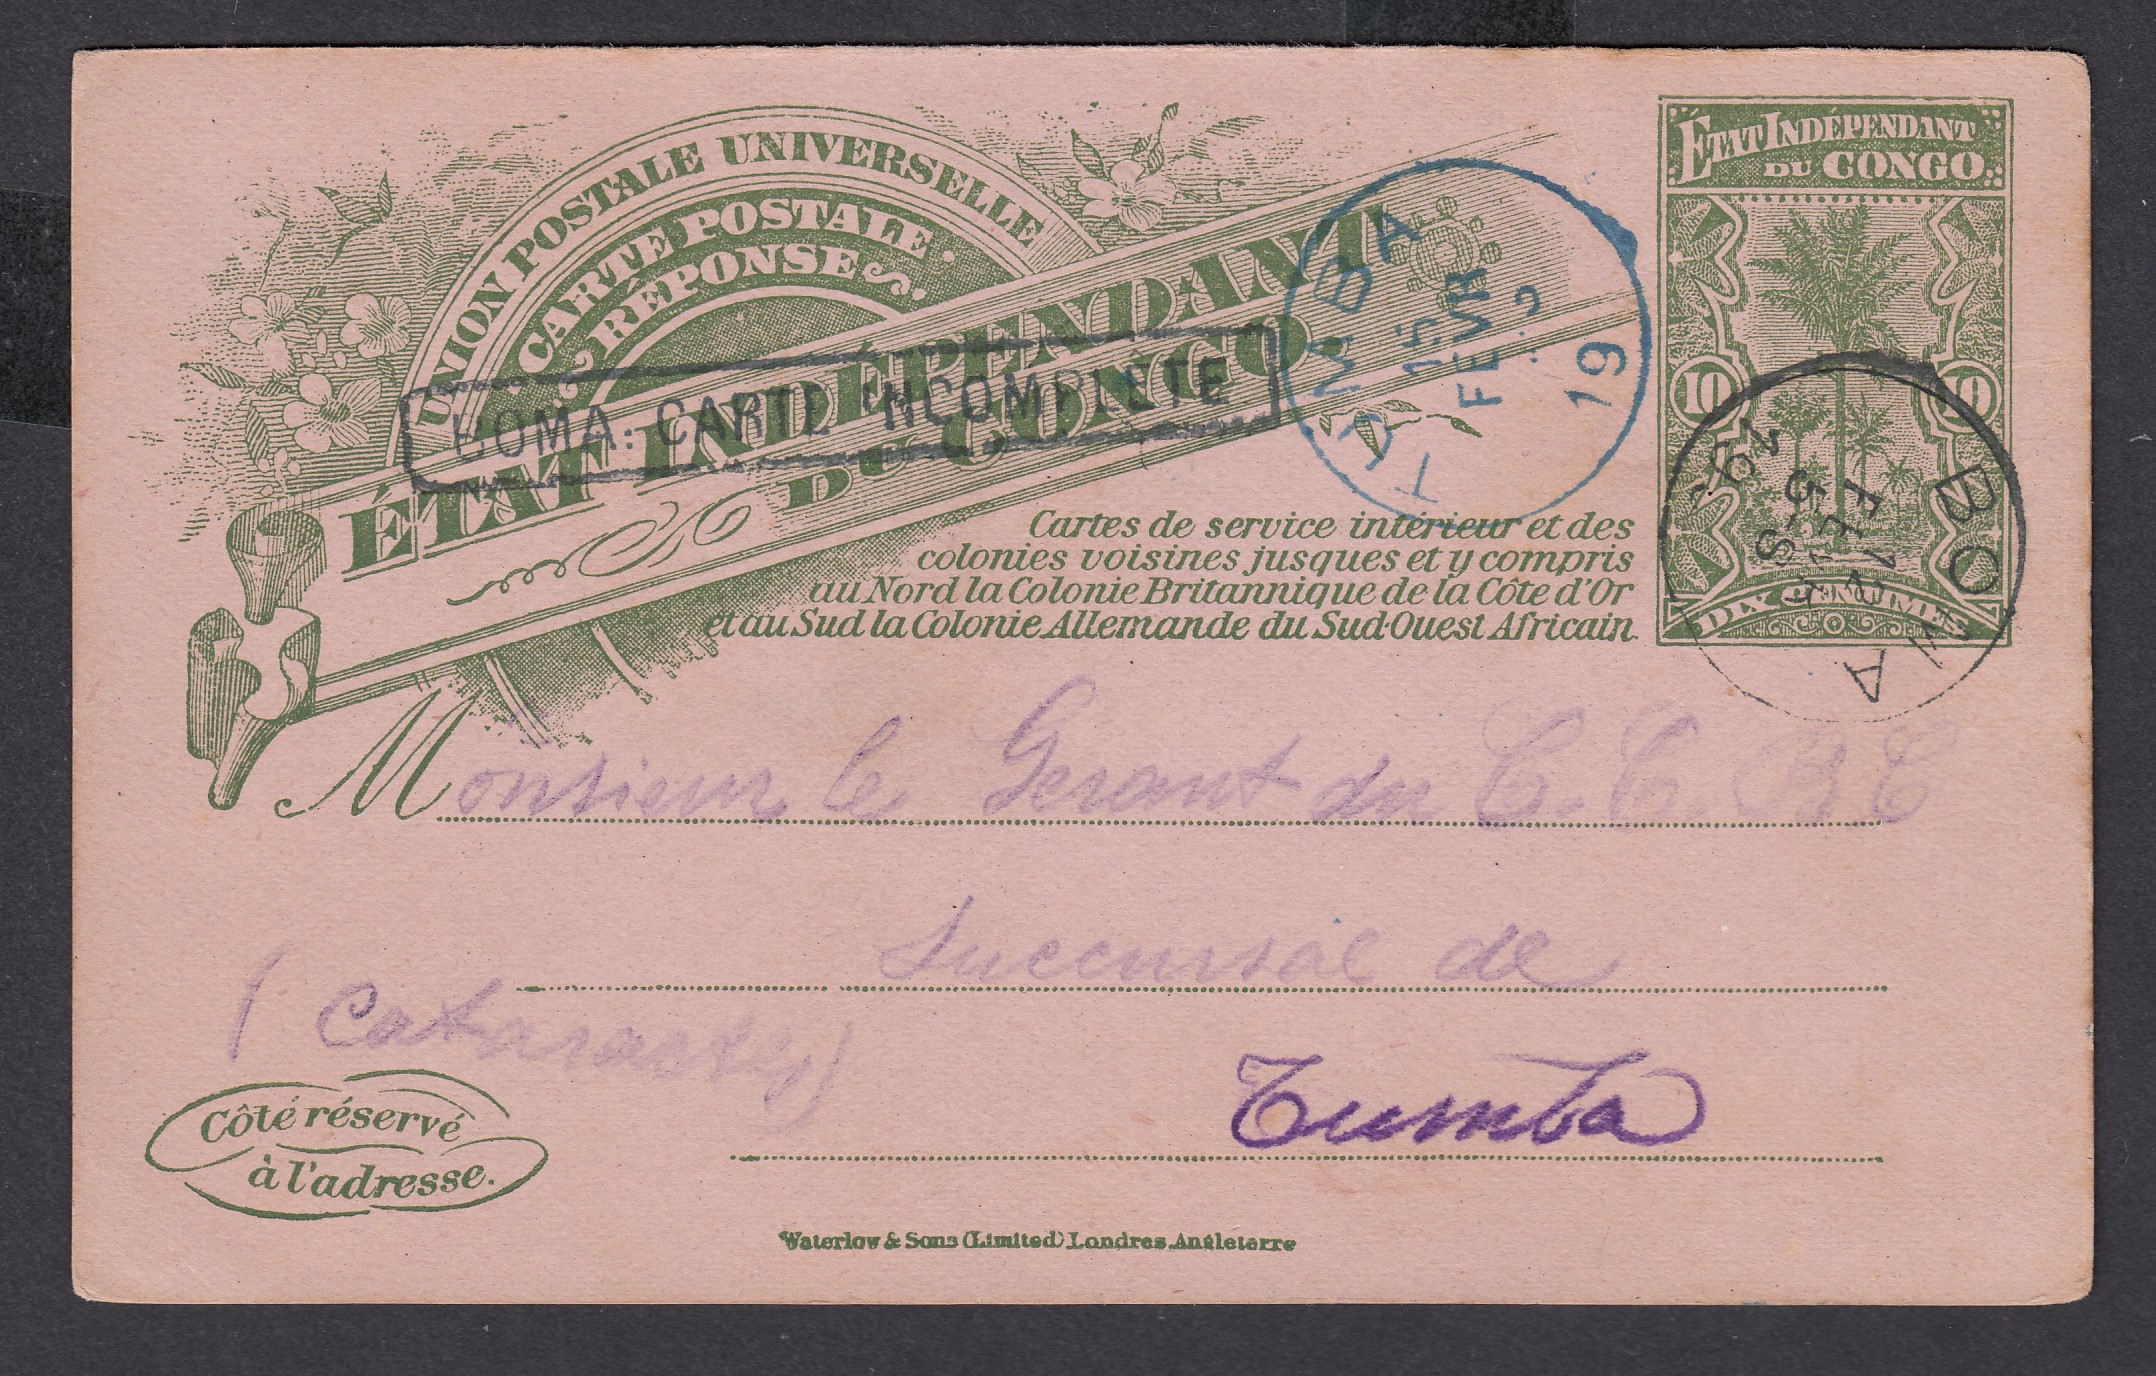 UNION POSTALE UNIVERSELLE
CARTE POSTALE
RÉPONSE
ÉTAT INDÉPENDANT
DU CONGO
BOMA: CARTE INCOMPLÈTE
TUMBA
15
FÉVR
19
ÉTAT INDÉPENDANT
DU CONGO
10 10
DIX CENTIMES
BOMA
Cartes de service intérieur et des
colonies voisines jusques et y compris
au Nord la Colonie Britannique de la Côte d'Or
et au Sud la Colonie Allemande du Sud-Ouest Africain.
Monsieur le Gerant du C. C.
Succursal de
(Cataractes)
Tumba
Côté réservé
à l'adresse.
Waterlow & Sons (Limited) Londres, Angleterre